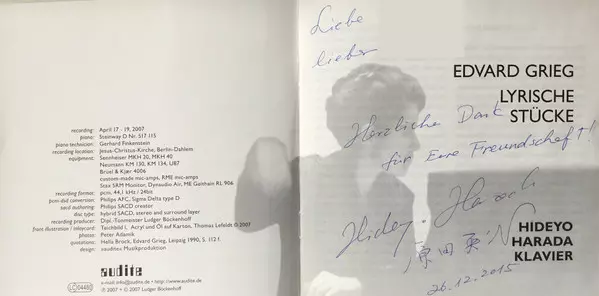 recording: April 17 - 19, 2007
piano: Steinway D Nr. 517 115
piano technician: Gerhard Finkenstein
recording location: Jesus-Christus-Kirche, Berlin-Dahlem
equipment: Sennheiser MKH 30, MKH 40
Neumann KM 130, KM 134, U87
Brüel & Kjær 4006
custom-made mic-amps, RME mic-amps
Stax SRM Monitor, Dynaudio Air, ME Geithain RL 906
recording format: pcm, 44,1 kHz / 24bit
pcm-dsd conversion: Philips AFC, Sigma Delta type D
sacd authoring: Philips SACD creator
disc type: hybrid SACD, stereo and surround layer
recording producer: Dipl.-Tonmeister Ludger Böckenhoff
front illustration / inlaycard: Teichbild I, Acryl und Öl auf Karton, Thomas Lefeldt © 2007
photos: Peter Adamik
quotations: Hella Brock, Edvard Grieg, Leipzig 1990, S. 112 f.
design: »audite« Musikproduktion
audite
e-mail: info@audite.de • http://www.audite.de
℗ 2007 + © 2007 Ludger Böckenhoff
LC 04480
Liebe
lieber
EDVARD GRIEG
LYRISCHE
STÜCKE
Herzliche Dank
für Eure Freundschaft!
Hideyo Harada
原田英代
HIDEYO
HARADA
KLAVIER
26.12.2015